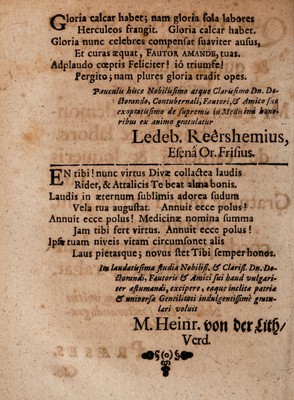 Gloria calcar habet; nam gloria sola labores
Herculeos frangit. Gloria calcar habet.
Gloria nunc celebres compensat suaviter ausus,
Et curas æquat, FAUTOR AMANDE, tuas.
Adplaudo cœptis Feliciter! iô triumfe!
Pergito; nam plures gloria tradit opes.
Pauculis hisce Nobilissimo atque Clarissimo Dn. Do-
ctorando, Contubernali, Fautori, & Amico suo
exoptatissimo de supremis in Medicinâ hono-
ribus ex animo gratulatur
Ledeb. Reêrshemius,
Esenâ Or. Frisius.
EN tibi! nunc virtus Divæ collactea laudis
Ridet, & Attalicis Te beat alma bonis.
Laudis in æternum sublimis adorea sudum
Vela tua augustat. Annuit ecce polus!
Annuit ecce polus! Medicinæ nomina summa
Jam tibi fert virtus. Annuit ecce polus!
Ipse tuam niveis vitam circumsonet alis
Laus pietasque; novus stet Tibi semper honos.
In laudatissima studia Nobiliss. & Clariss. Dn. Do-
ctorandi, Fautoris & Amici sui haud vulgari-
ter æstumandi, excipere, eaque inclitæ patriæ
& universæ Gentilitati indulgentissimè gratu-
lari voluit
M. Heinr. von der Lith/
Verd.